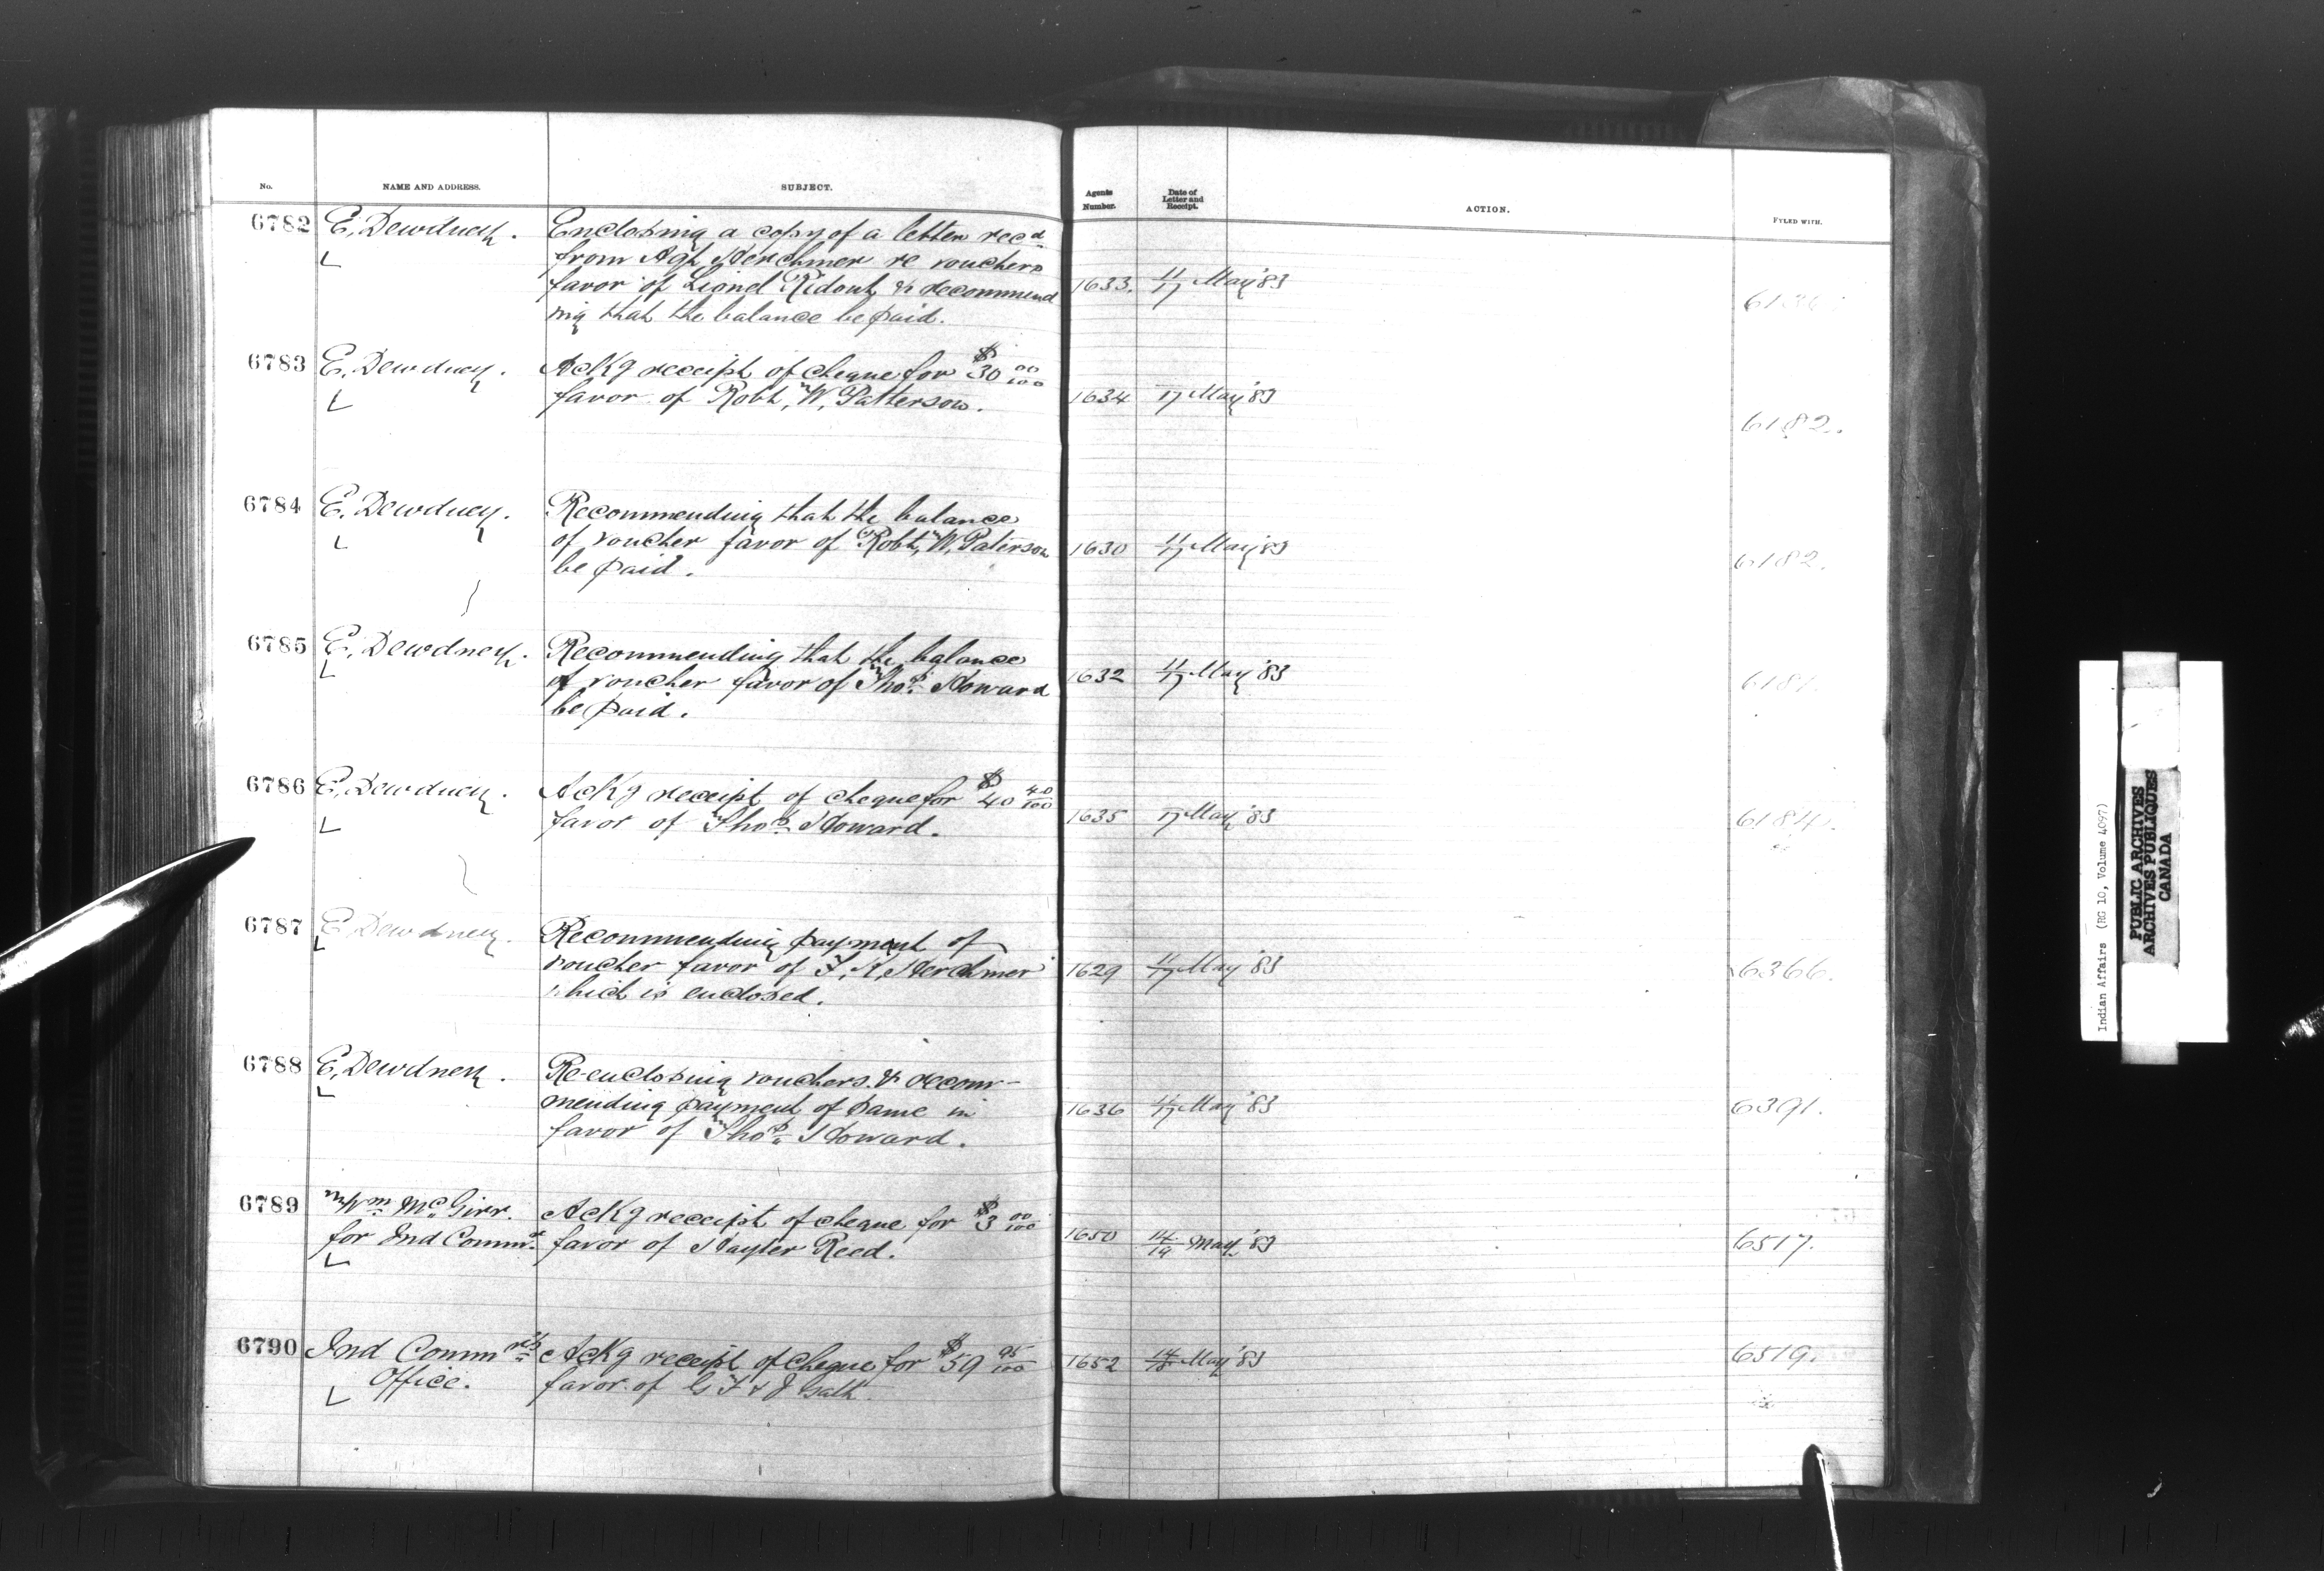 No. NAME AND ADDRESS. SUBJECT. Agents Number. Date of Letter and Receipt. ACTION. FYLED WITH.
6782 E. Dewdney. Enclosing a copy of a letter recd
from Agt Herchmer re vouchers
favor of Lionel Ridout, & recommend 1633. 11/17 May '83
ing that the balance be paid.
6783 E. Dewdney. Ackg receipt of cheque for $30 00/100
favor of Robt, W, Patterson. 1634 17 May '83 6182.
6784 E. Dewdney. Recommending that the balance
of voucher favor of Robt, W, Paterson 1630 11/17 May '83 6182.
be paid.
6785 E. Dewdney. Recommending that the balance
of voucher favor of Thos Howard 1632 11/17 May '83 6181.
be paid.
6786 E. Dewdney. Ackg receipt of cheque for $40 40/100
favor of Thos Howard. 1635 17 May '83 6184.
6787 E. Dewdney. Recommending payment of
voucher favor of F, K, Herchmer 1629 11/17 May '83 6366.
which is enclosed.
6788 E, Dewdney. Re-enclosing vouchers & recom-
mending payment of same in 1636 /17 May '83 6391.
favor of Thos Howard.
6789 Wm McGirr. Ackg receipt of cheque for $3 00/100
for Ind Commr favor of Hayter Reed. 1650 14/19 May '83 6517.
6790 Ind Commrs Ackg receipt of cheque for $59 95/100 1652 May '83 6519.
Office. favor of G F & J Galt.
Indian Affairs (RG 10, Volume 4097)
PUBLIC ARCHIVES
ARCHIVES PUBLIQUES
CANADA